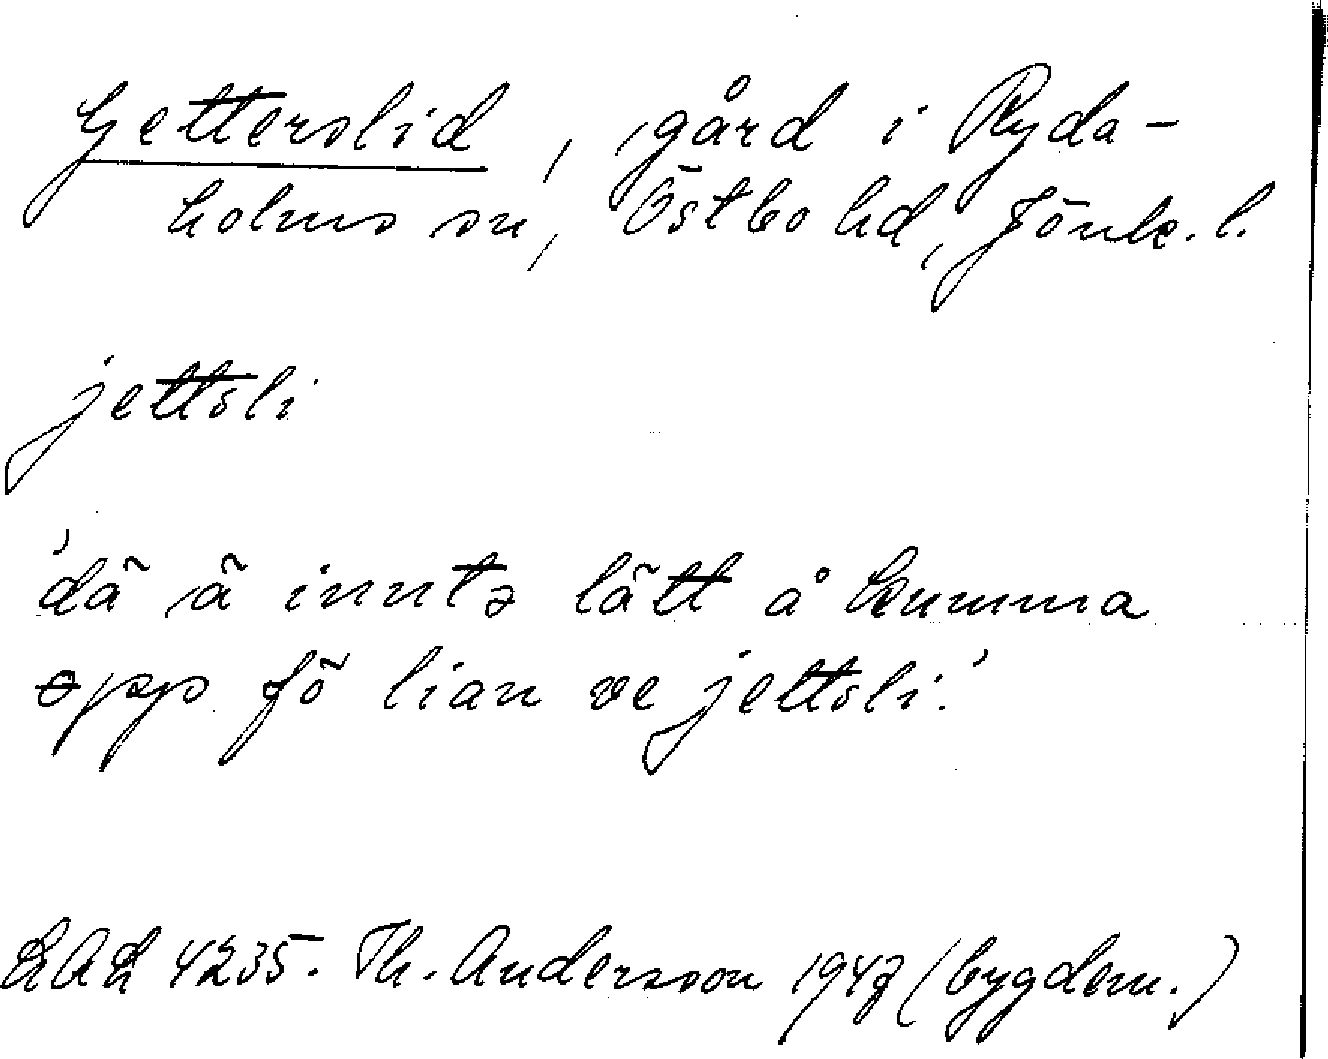 Getterslid, gård i Ryda-
holms sn, Östbo hd, Jönk. l.
jettsli
'dä ä inntə lätt å kumma
opp fö lian ve jettsli.'
LAL 4235. Th. Andersson 1947 (bygdem.)